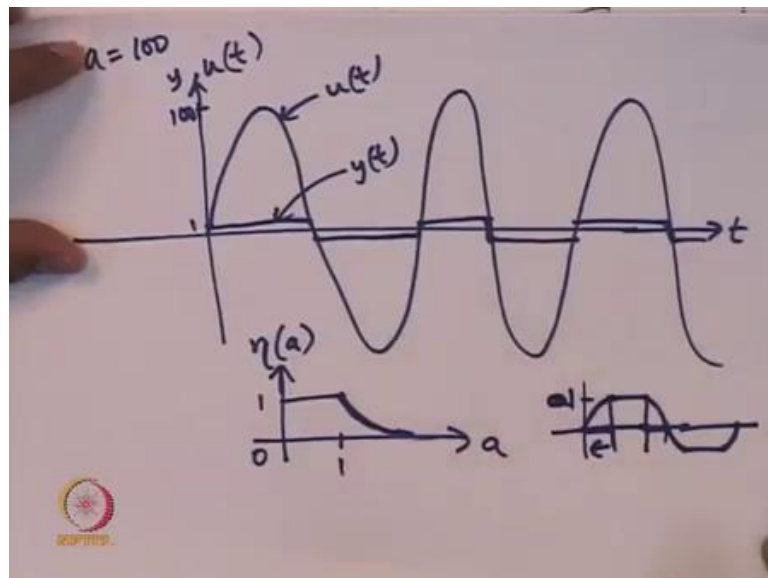 a = 100
y u(t)
100
u(t)
y(t)
1
t
η(a)
1
0
1
a
NPTEL